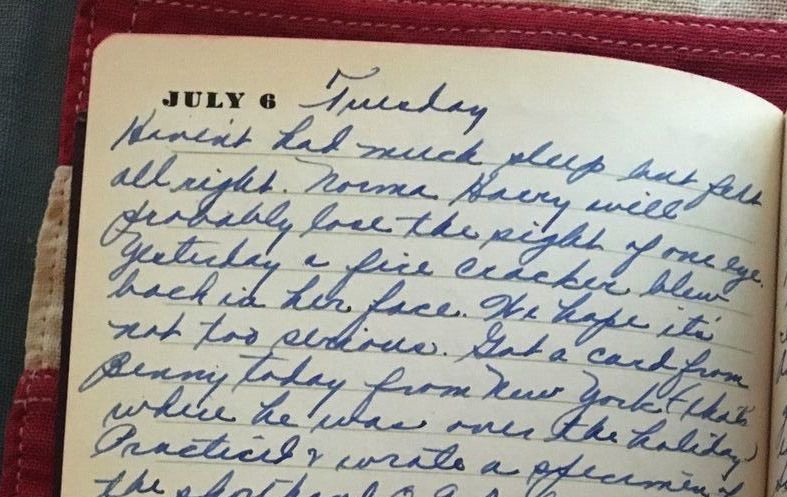 JULY 6 Tuesday
Haven't had much sleep but felt
all right. Norma Harry will
probably lose the sight of one eye.
Yesterday a fire cracker blew
back in her face. We hope it's
not too serious. Got a card from
Benny today from New York (that's
where he was over the holiday)
Practiced & wrote a specimen of
the shorthand O.G.A.